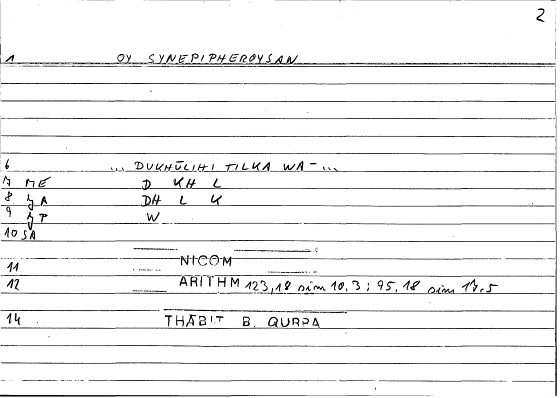 2
1 OY SYNEPIPHEROYSAN
6 ... DUKHŪLIHI TILKA WA- ...
7 ME D KH L
8 JA DH L K
9 JP W
10 SA
11 NICOM
12 ARITHM 123,18 sim 10.3; 95,18 sim 17.5
14 THĀBIT B. QURRA